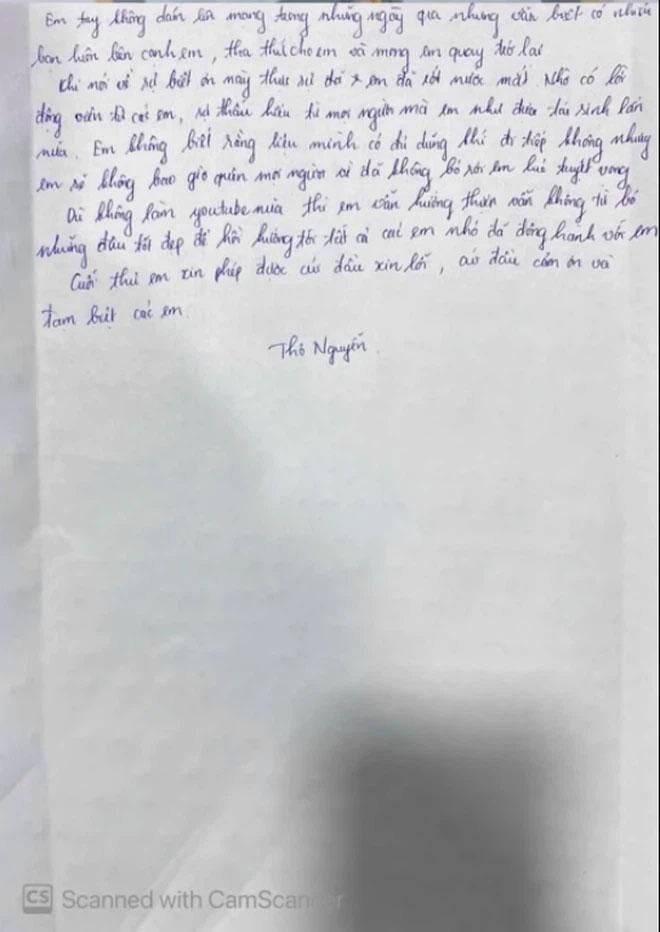 Em tuy không dám lên mạng trong những ngày qua nhưng vẫn biết có nhiều
bạn luôn bên cạnh em, tha thứ cho em và mong em quay trở lại
Khi nói về sự biết ơn này thực sự đã x em đã rơi nước mắt. Nhờ có lời
động viên từ các em, sự thấu hiểu từ mọi người mà em như được tái sinh lần
nữa. Em không biết rằng liệu mình có đủ dũng khí đi tiếp không nhưng
em sẽ không bao giờ quên mọi người vì đã không bỏ rơi em lúc tuyệt vọng
Dù không làm youtube nữa thì em vẫn hướng thiện vẫn không từ bỏ
những điều tốt đẹp để hồi hướng tới tất cả các em nhỏ đã đồng hành với em
Cuối thư em xin phép được cúi đầu xin lỗi, cúi đầu cảm ơn và
tạm biệt các em.
Thơ Nguyễn.
CS Scanned with CamScanner